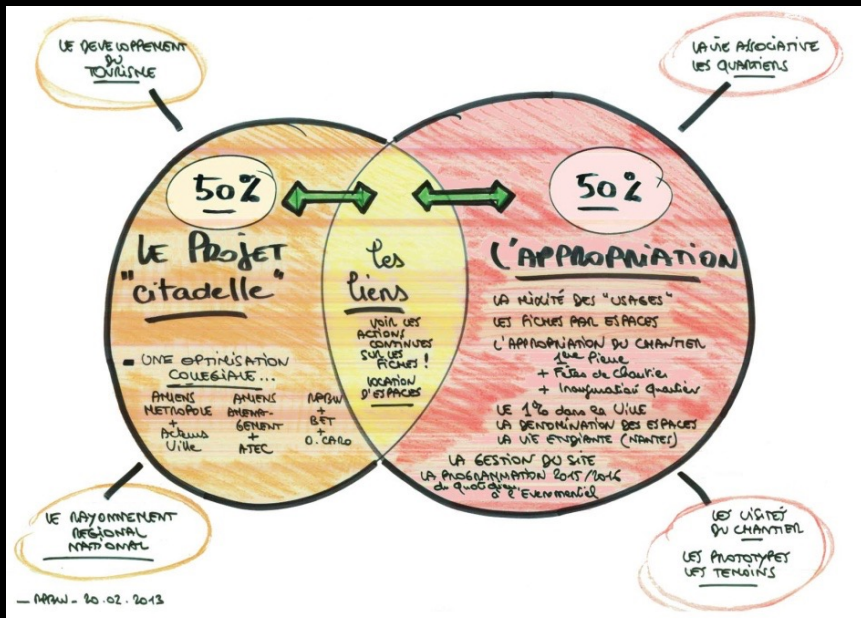 LE DEVELOPPEMENT
DU
TOURISME
LA VIE ASSOCIATIVE
LES QUARTIERS
50%
LE PROJET
"citadelle"
= UNE OPTIMISATION
COLLEGIALE...
AMIENS
METROPOLE
+
Acteurs
Ville
AMIENS
AMENA-
GEMENT
+
ATEC
RPBW
+
BET
+
D. CARO
les
liens
VOIR LES
ACTIONS
CONTINUES
SUR LES
FICHES !
LOCATION
D'ESPACES
50%
L'APPROPRIATION
LA MIXITÉ DES "USAGES"
LES FICHES PAR ESPACES
L'APPROPRIATION DU CHANTIER
1ère Pierre
+ Fêtes de Chantier
+ Inauguration Quartier
LE 1% dans la Ville
LA DENOMINATION DES ESPACES
LA VIE ETUDIANTE (NANTES)
LA GESTION DU SITE
LA PROGRAMMATION 2015/2016
du quotidien
à l'Evenementiel
LE RAYONNEMENT
REGIONAL
NATIONAL
LES VISITES
DU CHANTIER
LES PROTOTYPES
LES TEMOINS
— RPBW - 20.02.2013